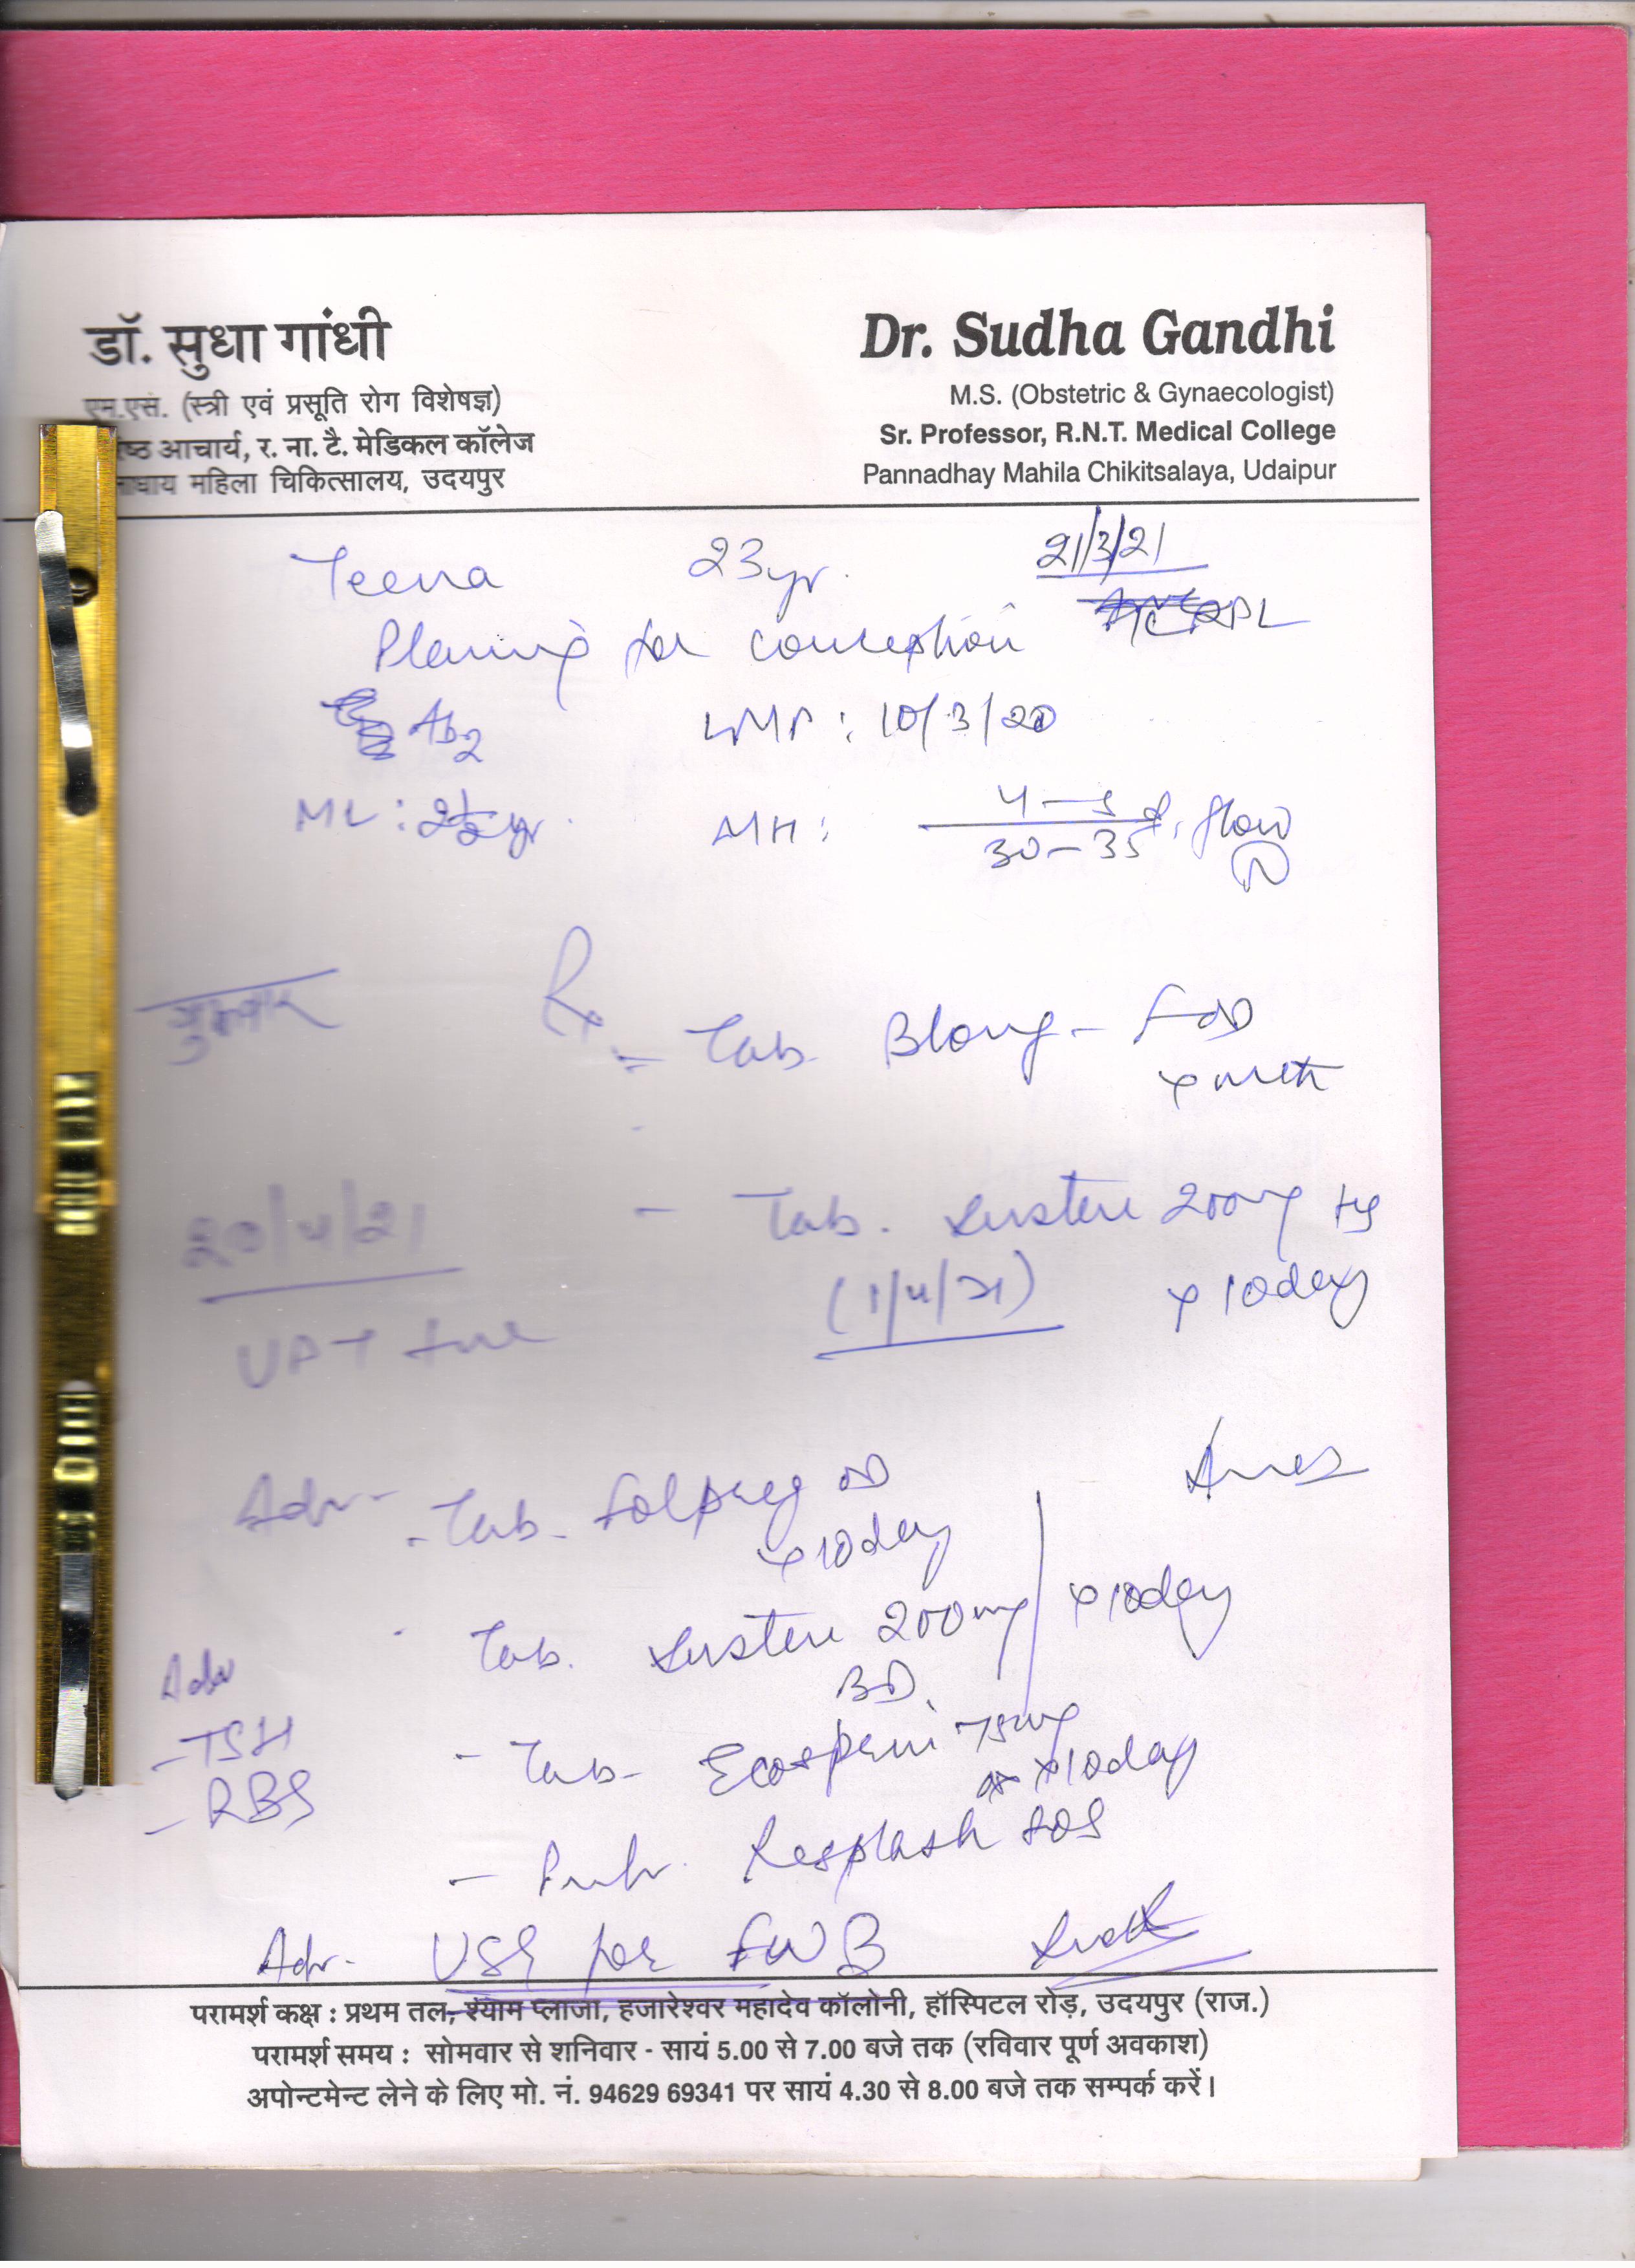 डॉ. सुधा गांधी
एम.एस. (स्त्री एवं प्रसूति रोग विशेषज्ञ)
ष्ठ आचार्य, र. ना. टै. मेडिकल कॉलेज
ाधाय महिला चिकित्सालय, उदयपुर
Dr. Sudha Gandhi
M.S. (Obstetric & Gynaecologist)
Sr. Professor, R.N.T. Medical College
Pannadhay Mahila Chikitsalaya, Udaipur
Teena 23yr. 21/3/21
Planning for conception RPL
Ab2 LMP : 10/3/20
ML : 2½yr. MH : 4-5/30-35 d, flow N
Rx
- Tab. Blong-F OD
x mth
- Tab. Susten 200mg HS
(1/4/21) x 10day
20/4/21
UPT +ve
Adv- - Tab. Folpreg OD
x 10day
- Tab. Susten 200mg x 10day
BD.
- Tab- Ecosprin 75mg
x 10day
Adv
- TSH
- RBS
SOS
Adv- USG for FWB
परामर्श कक्ष : प्रथम तल, श्याम प्लाजा, हजारेश्वर महादेव कॉलोनी, हॉस्पिटल रोड़, उदयपुर (राज.)
परामर्श समय : सोमवार से शनिवार - सायं 5.00 से 7.00 बजे तक (रविवार पूर्ण अवकाश)
अपोन्टमेन्ट लेने के लिए मो. नं. 94629 69341 पर सायं 4.30 से 8.00 बजे तक सम्पर्क करें।